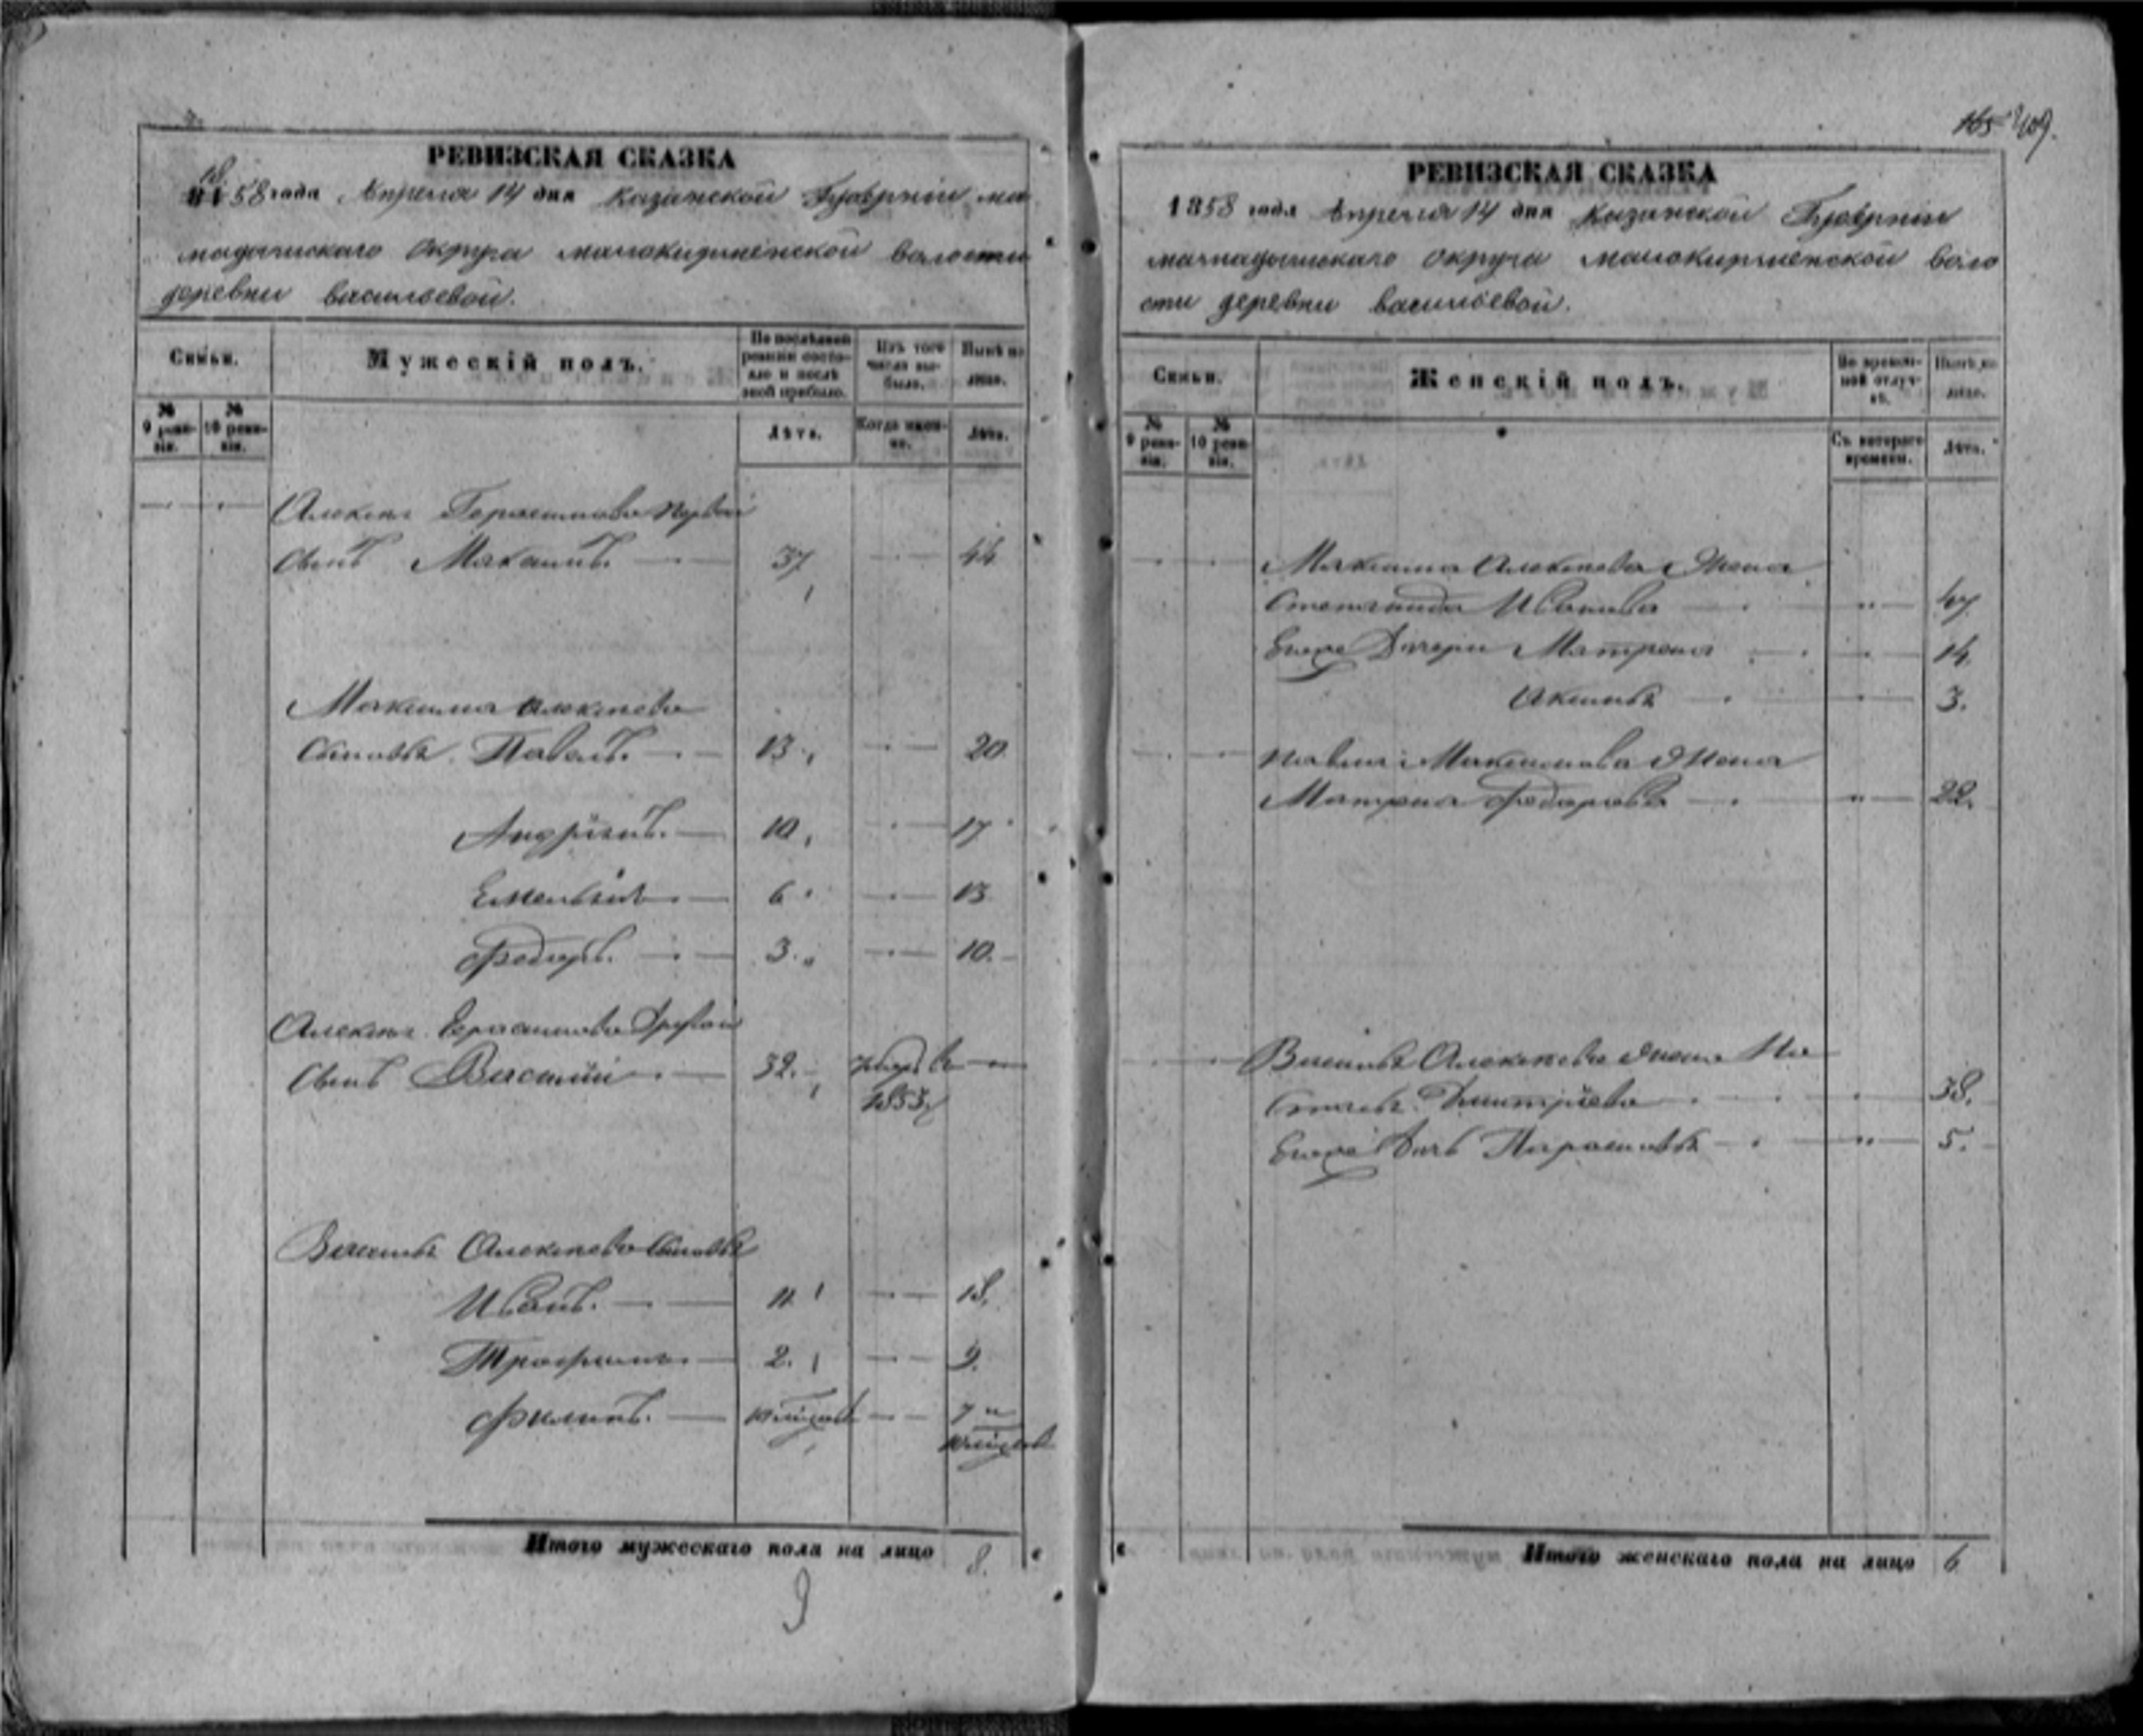 РЕВИЗСКАЯ СКАЗКА
1858 года Апреля 14 дня Казанской Губерніи ма
мадышскаго Округа малокирменской волости
деревни васильевой.
Семьи.
Мужескій полъ.
По послѣдней ревизіи состояло и послѣ оной прибыло.
Изъ того числа выбыло.
Нынѣ на лицо.
№ 9 ревизіи.
№ 10 ревизіи.
Лѣта.
Когда именно.
Лѣта.
Алексѣя Герасимова первой
Сынъ Максимъ 37 44
Максима Алексѣева
Сыновья Павелъ. 13 20
Андріянъ. 10 17
Емельянъ 6 13
Федоръ. 3 10.
Алексѣя Герасимова Другой
Сынъ Василій 32. умеръ въ
1853
Василья Алексѣева Сыновья
Иванъ. 11 18.
Трофимъ. 2. 9.
Филипъ. 7 и
Итого мужескаго пола на лицо 8.
9
165 409.
РЕВИЗСКАЯ СКАЗКА
1858 года Апреля 14 дня Казанской Губерніи
мамадышскаго округа малокирменской воло
сти деревни васильевой.
Семьи.
Женскій полъ.
Во временной отлучкѣ.
Нынѣ на лицо.
№ 9 ревизіи.
№ 10 ревизіи.
Съ котораго времени.
Лѣта.
Максима Алексѣева Жена
Степанида Иванова 47
Ихъ Дочери Матрена 14
Аксинья 3.
Павла Максимова Жена
Матрена Федорова 22.
Василья Алексѣева жена На
сталья Дмитріева 38.
Ихъ дочь Парасковья 5.
Итого женскаго пола на лицо 6